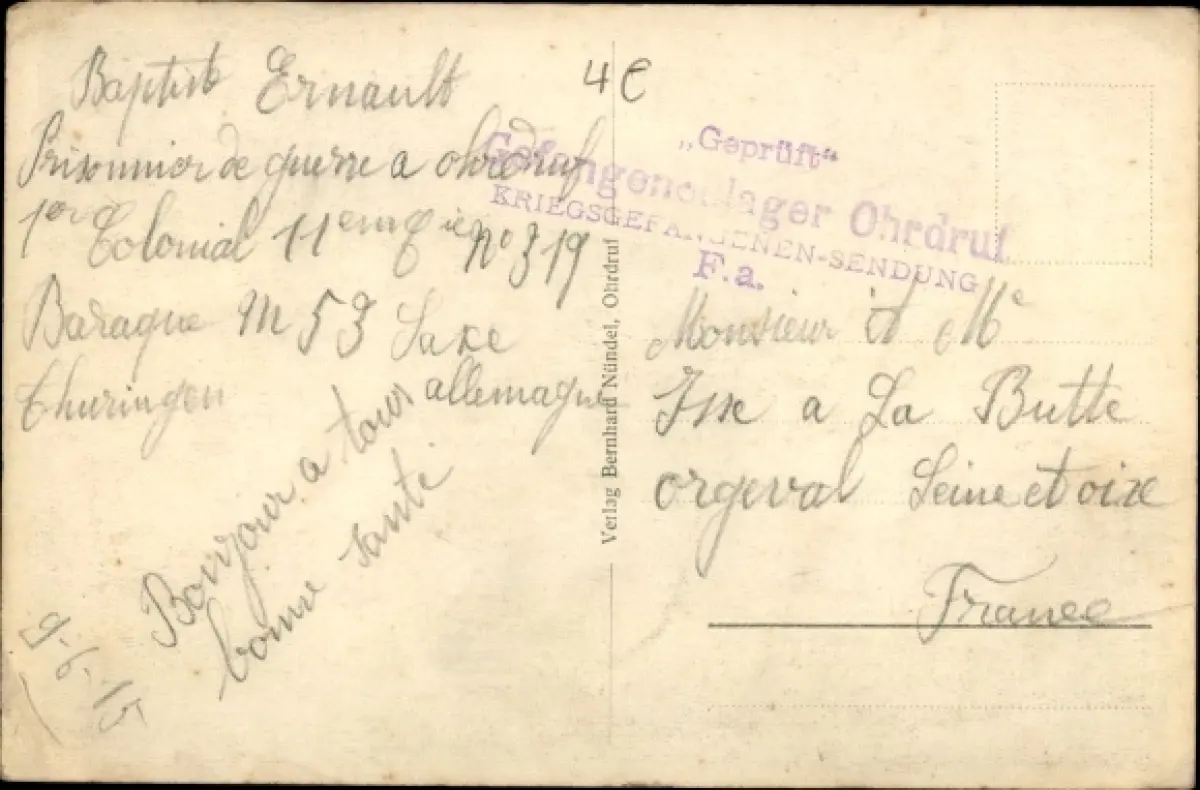 Baptist Ernault
Prisonnier de guerre a ohrdruf
1er Colonial 11eme Cie No 319
Baraque M 53 Saxe
thuringen allemagne
Bonjour a tous
bonne santé
9-6-15
4 €
Verlag Bernhard Nündel, Ohrdruf
„Geprüft“
Gefangenenlager Ohrdruf
KRIEGSGEFANGENEN-SENDUNG
F.a.
Monsieur et Me
Isse a La Butte
orgeval Seine et oise
France